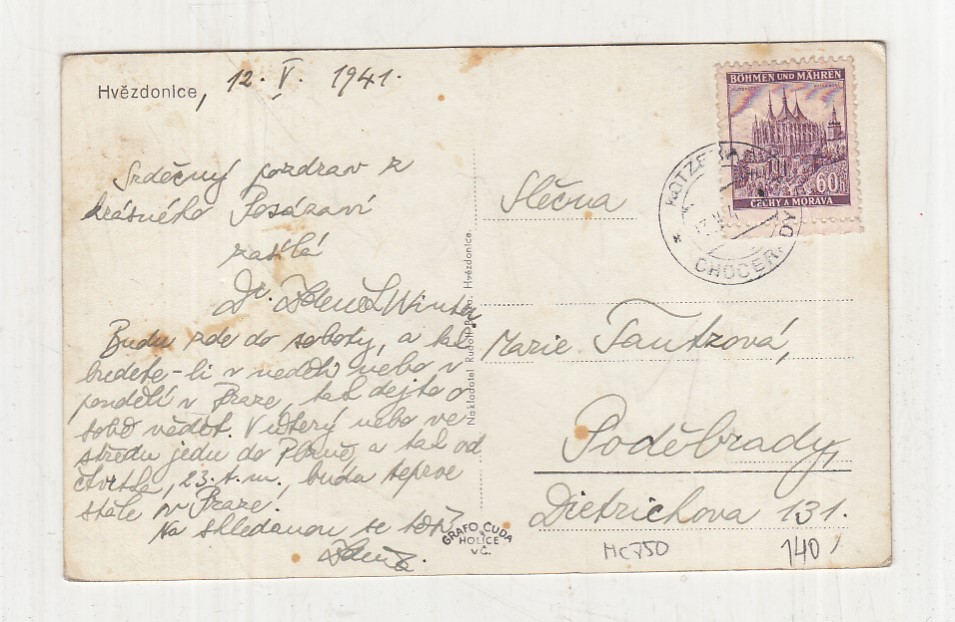 Hvězdonice, 12. V. 1941.
Srdečný pozdrav z
krásného Posázaví
zasílá
Dr. Zdeněk Winter.
Budu zde do soboty, a tak
budete-li v neděli nebo v
pondělí v Praze, tak dejte o
sobě vědět. V úterý nebo ve
středu jedu do Plzně, a tak od
čtvrtka, 23. t. m., budu teprve
stále v Praze.
Na shledanou se těší
Zdeněk.
Nakladatel Rudolf Hvězdonice.
GRAFO ČUDA
HOLICE
v Č.
BÖHMEN UND MÄHREN
60h
ČECHY A MORAVA
KOTZERAD
CHOCERADY
Slečna
Marie Tautzová,
Poděbrady,
Dietrichova 131.
Mc750
140